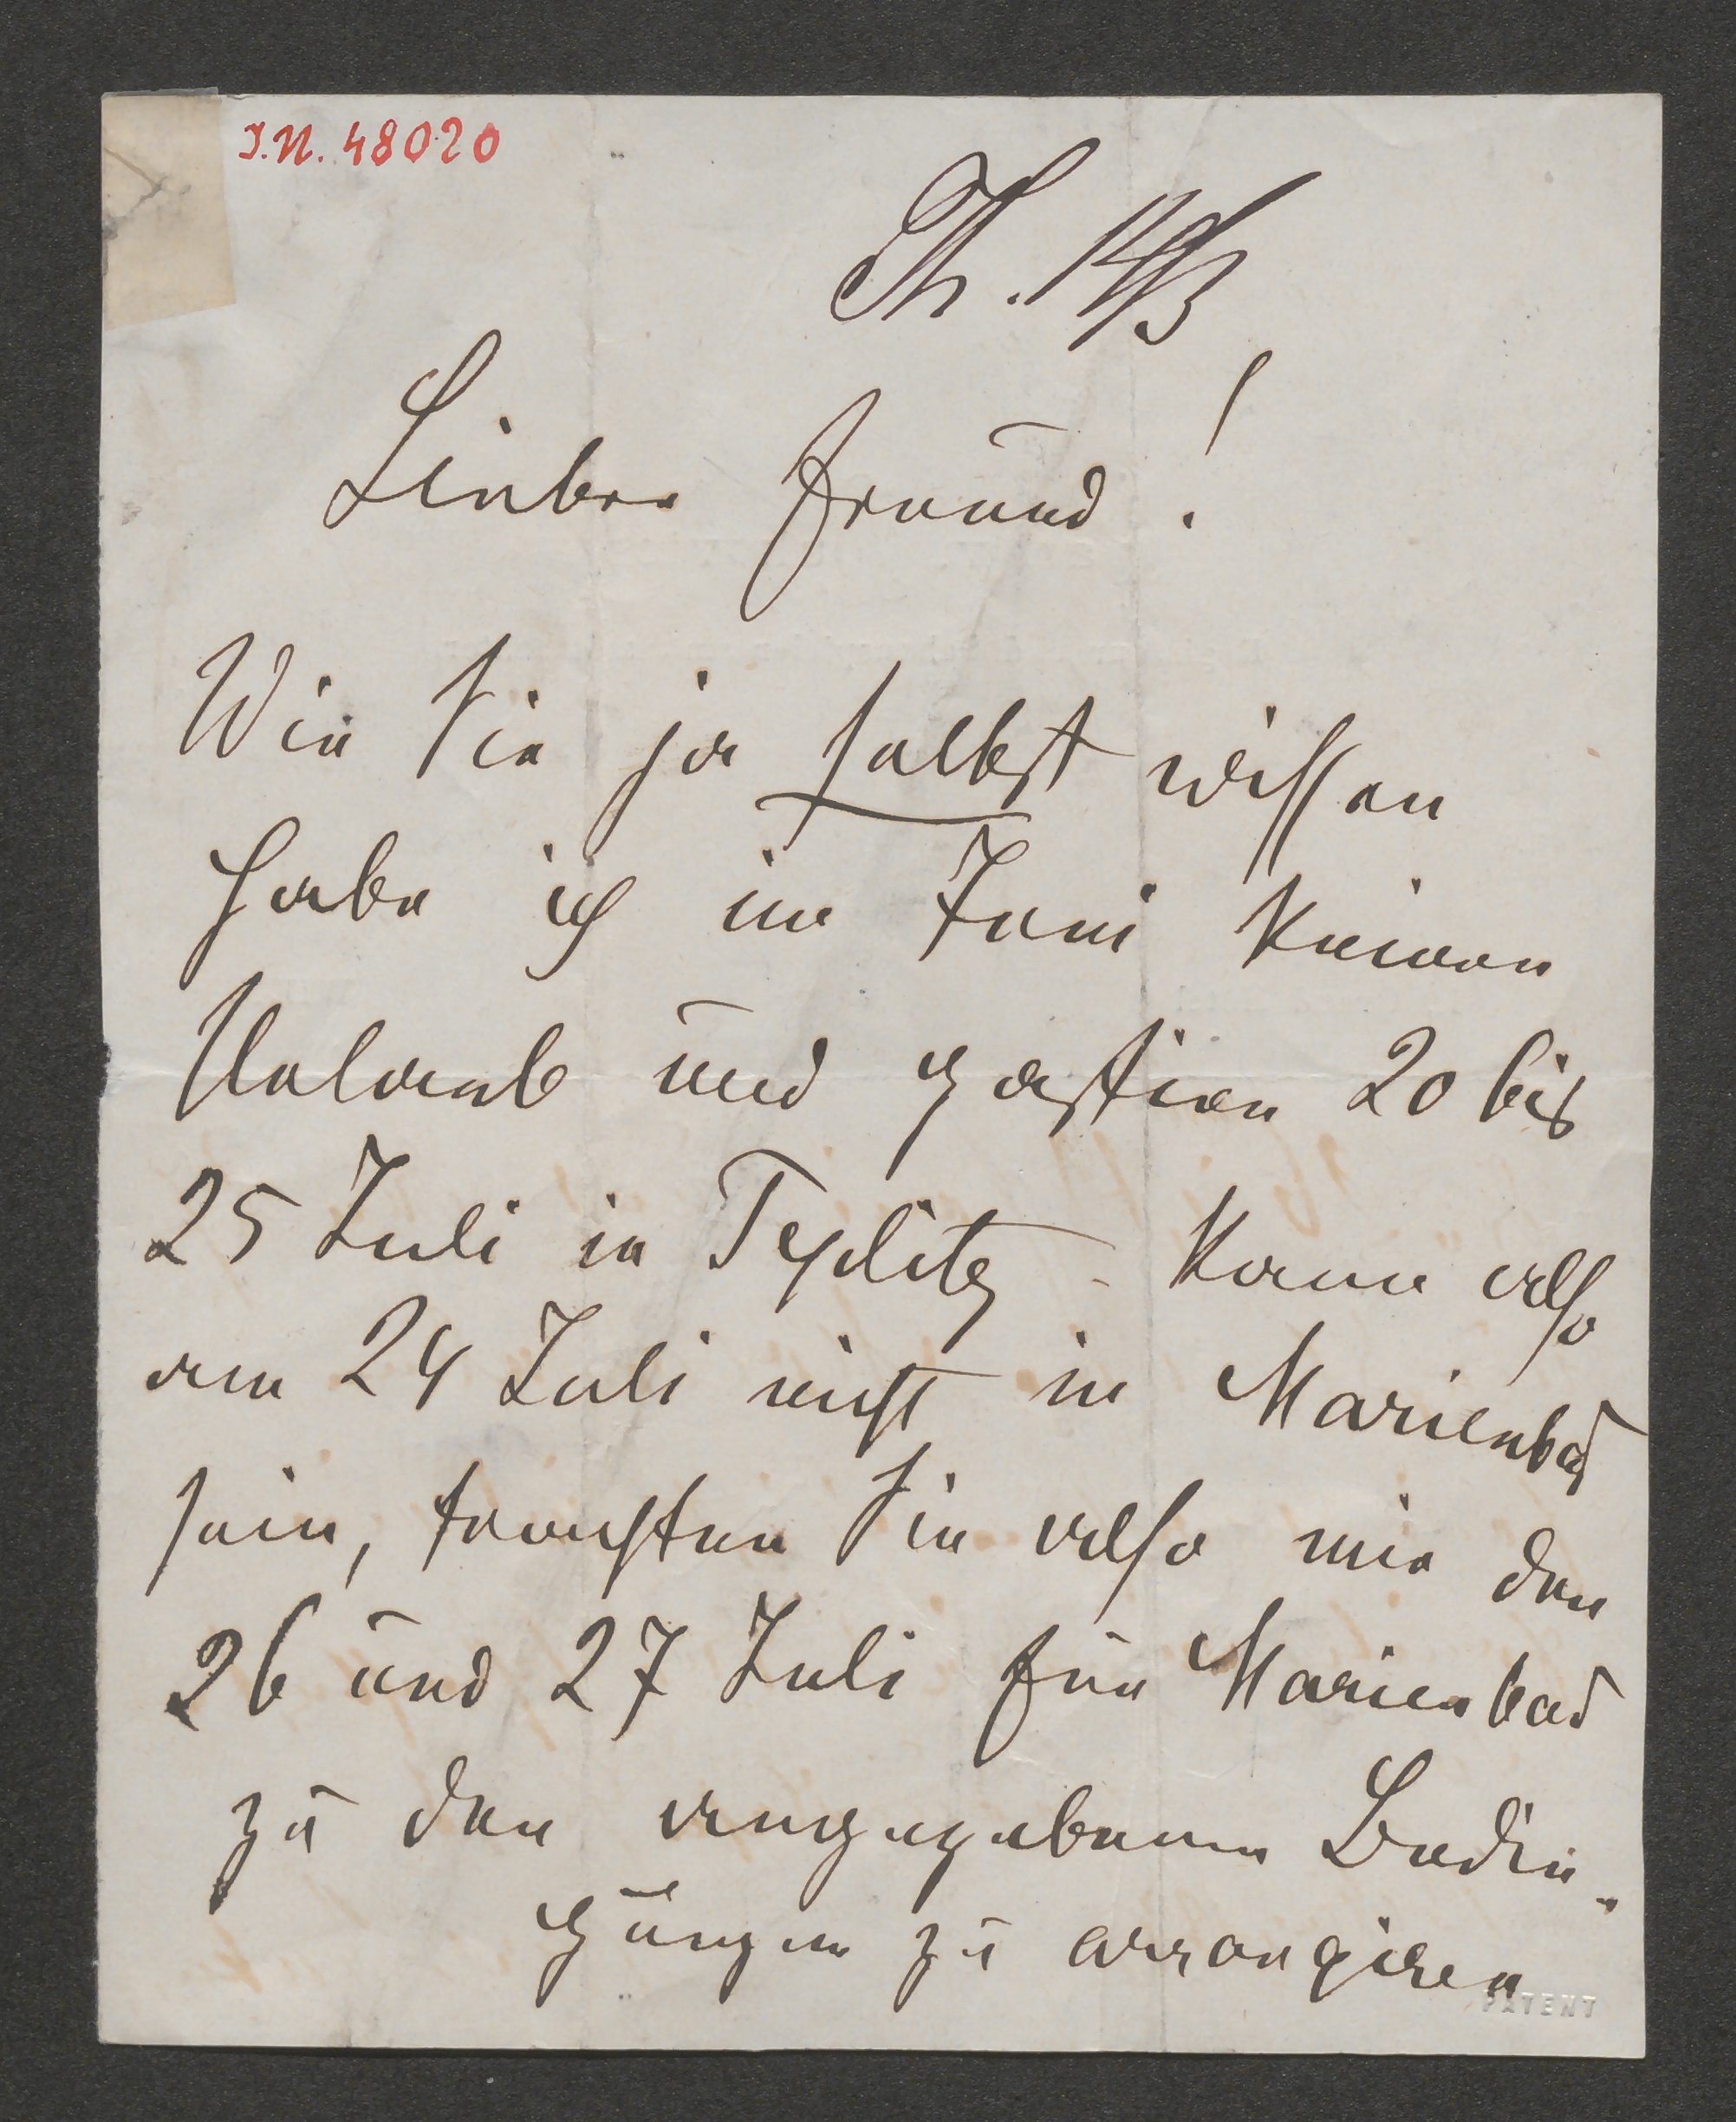 I.N. 48020
Th. 14/3
Lieber Freund!
Wie Sie ja selbst wissen
habe ich im Juni keinen
Urlaub und gastire 20 bis
25 Juli in Teplitz - kann also
am 24 Juli nicht in Marienbad
sein, trachten Sie also mir den
26 und 27 Juli für Marienbad
zu den angegebenen Bedin-
gungen zu arrangiren
PATENT